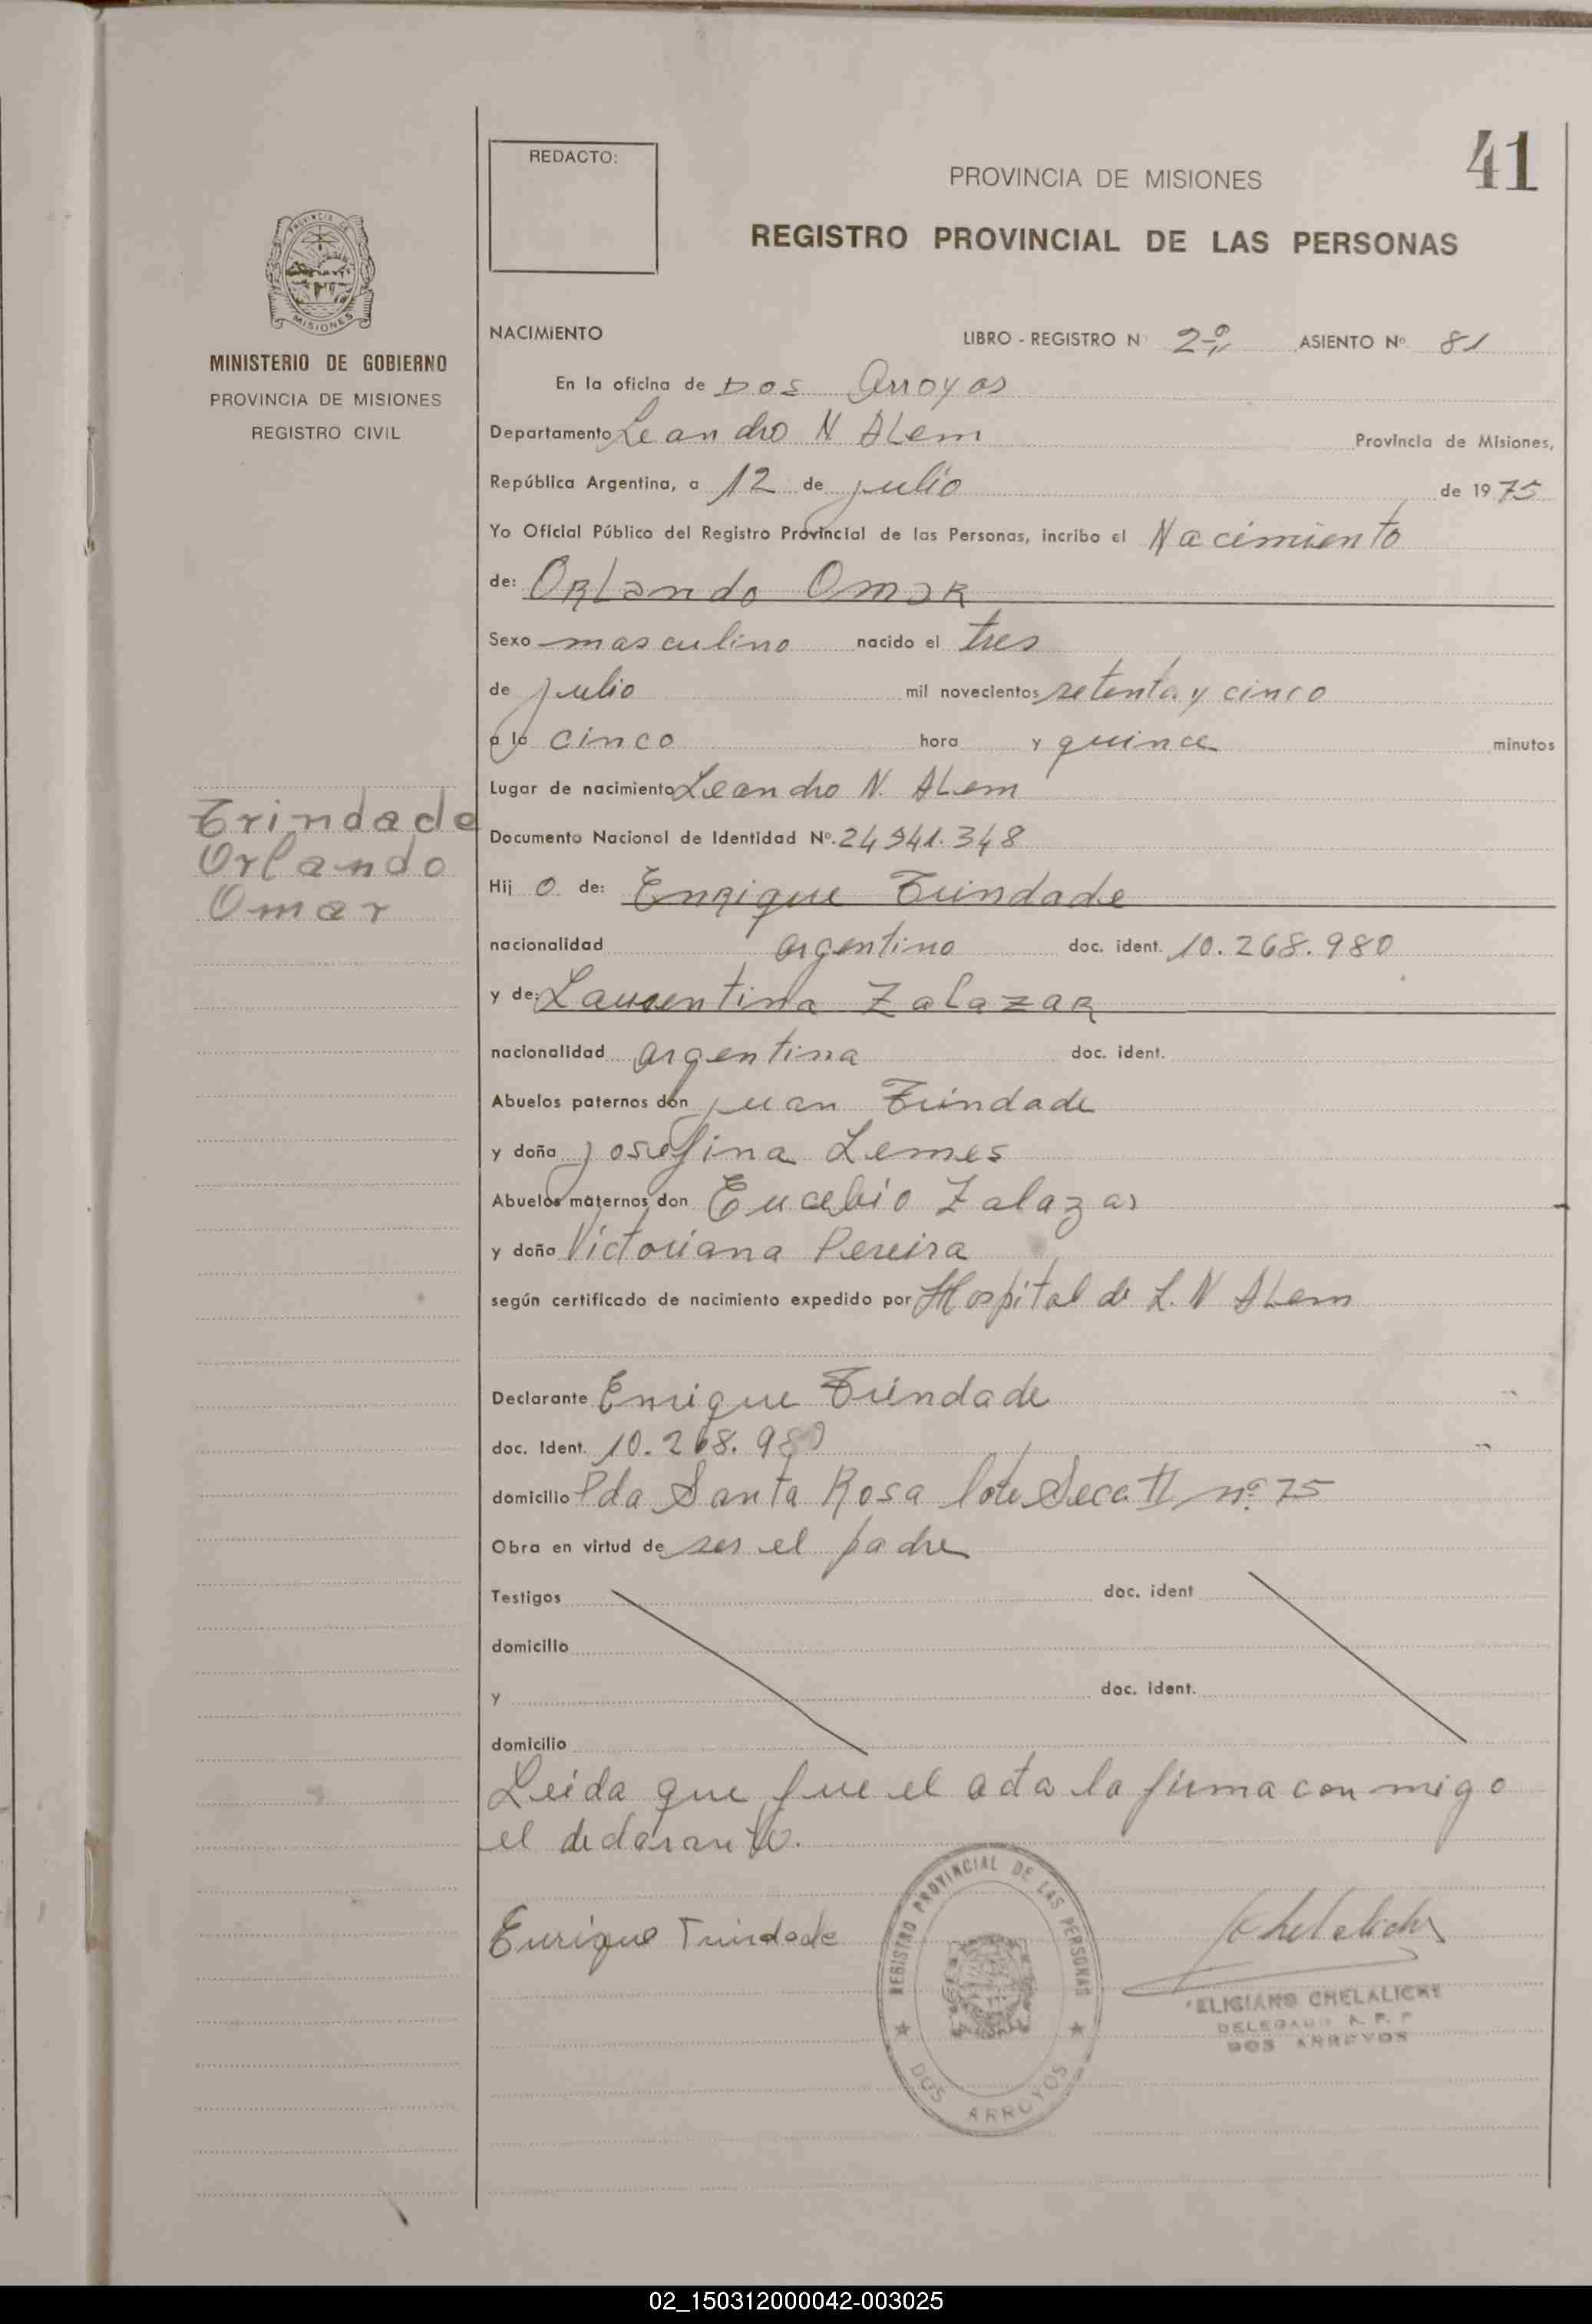 41
REDACTO:
PROVINCIA DE MISIONES
REGISTRO PROVINCIAL DE LAS PERSONAS
PROVINCIA DE
MISIONES
MINISTERIO DE GOBIERNO
PROVINCIA DE MISIONES
REGISTRO CIVIL
NACIMIENTO LIBRO - REGISTRO N° 2º ASIENTO Nº 81
En la oficina de Dos Arroyos
Departamento Leandro N ALem Provincia de Misiones,
República Argentina, a 12 de julio de 1975
Yo Oficial Público del Registro Provincial de las Personas, incribo el Nacimiento
de: ORLando OmaR
Sexo masculino nacido el tres
de julio mil novecientos setenta y cinco
a la cinco hora y quince minutos
Lugar de nacimiento Leandro N. ALem
Trindade
Orlando
Omar
Documento Nacional de Identidad Nº. 24 941.348
Hij o de: Enrique Trindade
nacionalidad argentino doc. ident. 10.268.980
y de: Laurentina ZalazaR
nacionalidad argentina doc. ident.
Abuelos paternos don juan Trindade
y doña josefina Lemes
Abuelos maternos don Eucebio Zalazar
y doña Victoriana Pereira
según certificado de nacimiento expedido por Hospital de L. N ALem
Declarante Enrique Trindade
doc. Ident. 10.268.980
domicilio Pda Santa Rosa lote Secc II nº 75
Obra en virtud de ser el padre
Testigos doc. ident
domicilio
y doc. ident.
domicilio
Leida que fue el acta la firma con migo
el declarante.
Enrique Trindade
REGISTRO PROVINCIAL DE LAS PERSONAS
DOS ARROYOS
ELIGIANO CHELALICHE
DELEGADO R. P. P
DOS ARROYOS
02_150312000042-003025